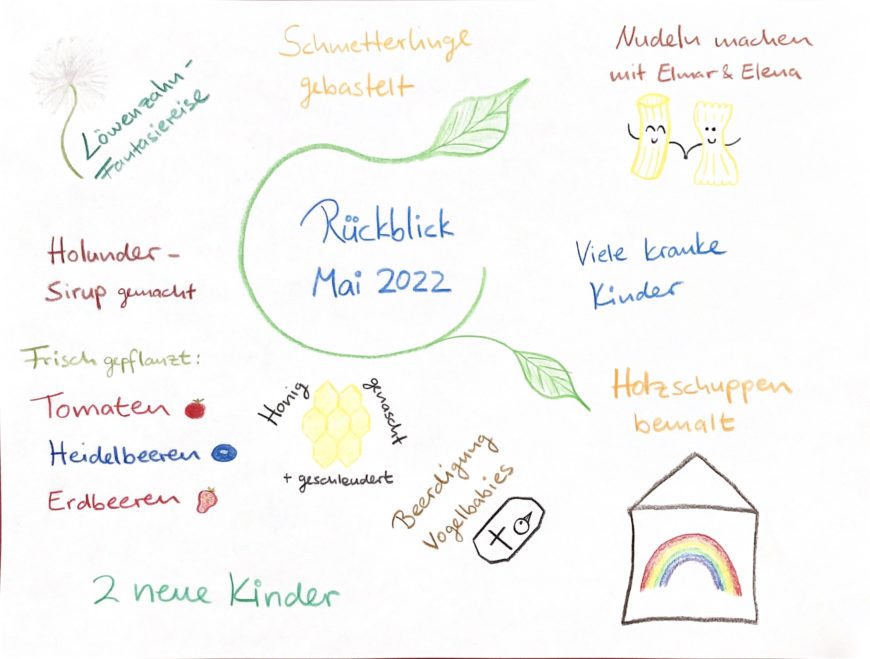 Schmetterlinge
gebastelt
Nudeln machen
mit Elmar & Elena
Löwenzahn-
Fantasiereise
Rückblick
Mai 2022
Holunder-
Sirup gemacht
Viele kranke
Kinder
Frisch gepflanzt:
Tomaten
Heidelbeeren
Erdbeeren
Honig
genascht
+ geschleudert
Holzschuppen
bemalt
Beerdigung
Vogelbabies
2 neue Kinder